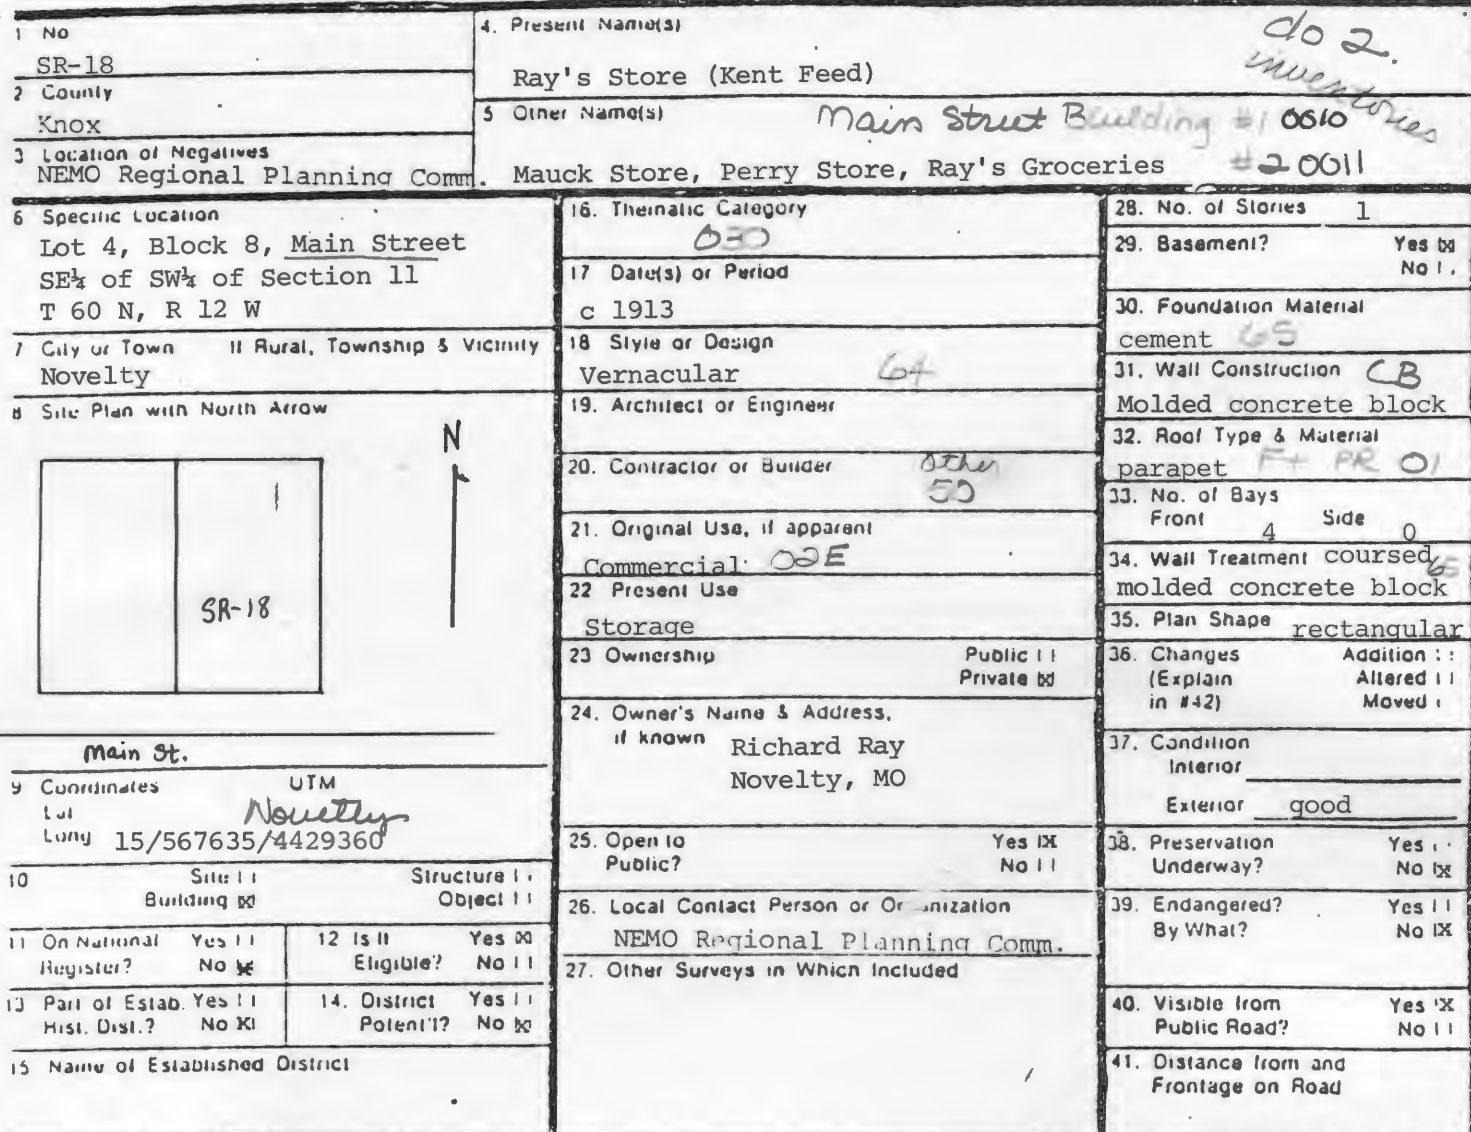 1 No
SR-18
2 County
Knox
3 Location of Negatives
NEMO Regional Planning Comm.
4. Present Name(s)
Ray's Store (Kent Feed)
do 2.
inventories
5 Other Name(s)
Main Street Building #1 0010
Mauck Store, Perry Store, Ray's Groceries #2 0011
6 Specific Location
Lot 4, Block 8, Main Street
SE¼ of SW¼ of Section 11
T 60 N, R 12 W
7 City or Town If Rural, Township & Vicinity
Novelty
8 Site Plan with North Arrow
N
SR-18
Main St.
9 Coordinates UTM
Lat
Novelty
Long 15/567635/4429360
10 Site Structure
Building [X] Object
11 On National Register? Yes
No [X]
12 Is It Eligible? Yes [X]
No
13 Part of Estab. Hist. Dist.? Yes
No [X]
14. District Potent'l? Yes
No [X]
15 Name of Established District
16. Thematic Category
030
17 Date(s) or Period
c 1913
18 Style or Design
Vernacular 64
19. Architect or Engineer
20. Contractor or Builder
Other
50
21. Original Use, if apparent
Commercial 02E
22 Present Use
Storage
23 Ownership Public
Private [X]
24. Owner's Name & Address,
if known Richard Ray
Novelty, MO
25. Open to Yes [X]
Public? No
26. Local Contact Person or Organization
NEMO Regional Planning Comm.
27. Other Surveys in Which Included
28. No. of Stories 1
29. Basement? Yes [X]
No
30. Foundation Material
cement 65
31. Wall Construction CB
Molded concrete block
32. Roof Type & Material
parapet Ft PR 01
33. No. of Bays
Front 4 Side 0
34. Wall Treatment coursed 65
molded concrete block
35. Plan Shape rectangular
36. Changes Addition
(Explain Altered
in #42) Moved
37. Condition
Interior
Exterior good
38. Preservation Yes
Underway? No [X]
39. Endangered? Yes
By What? No [X]
40. Visible from Yes [X]
Public Road? No
41. Distance from and
Frontage on Road